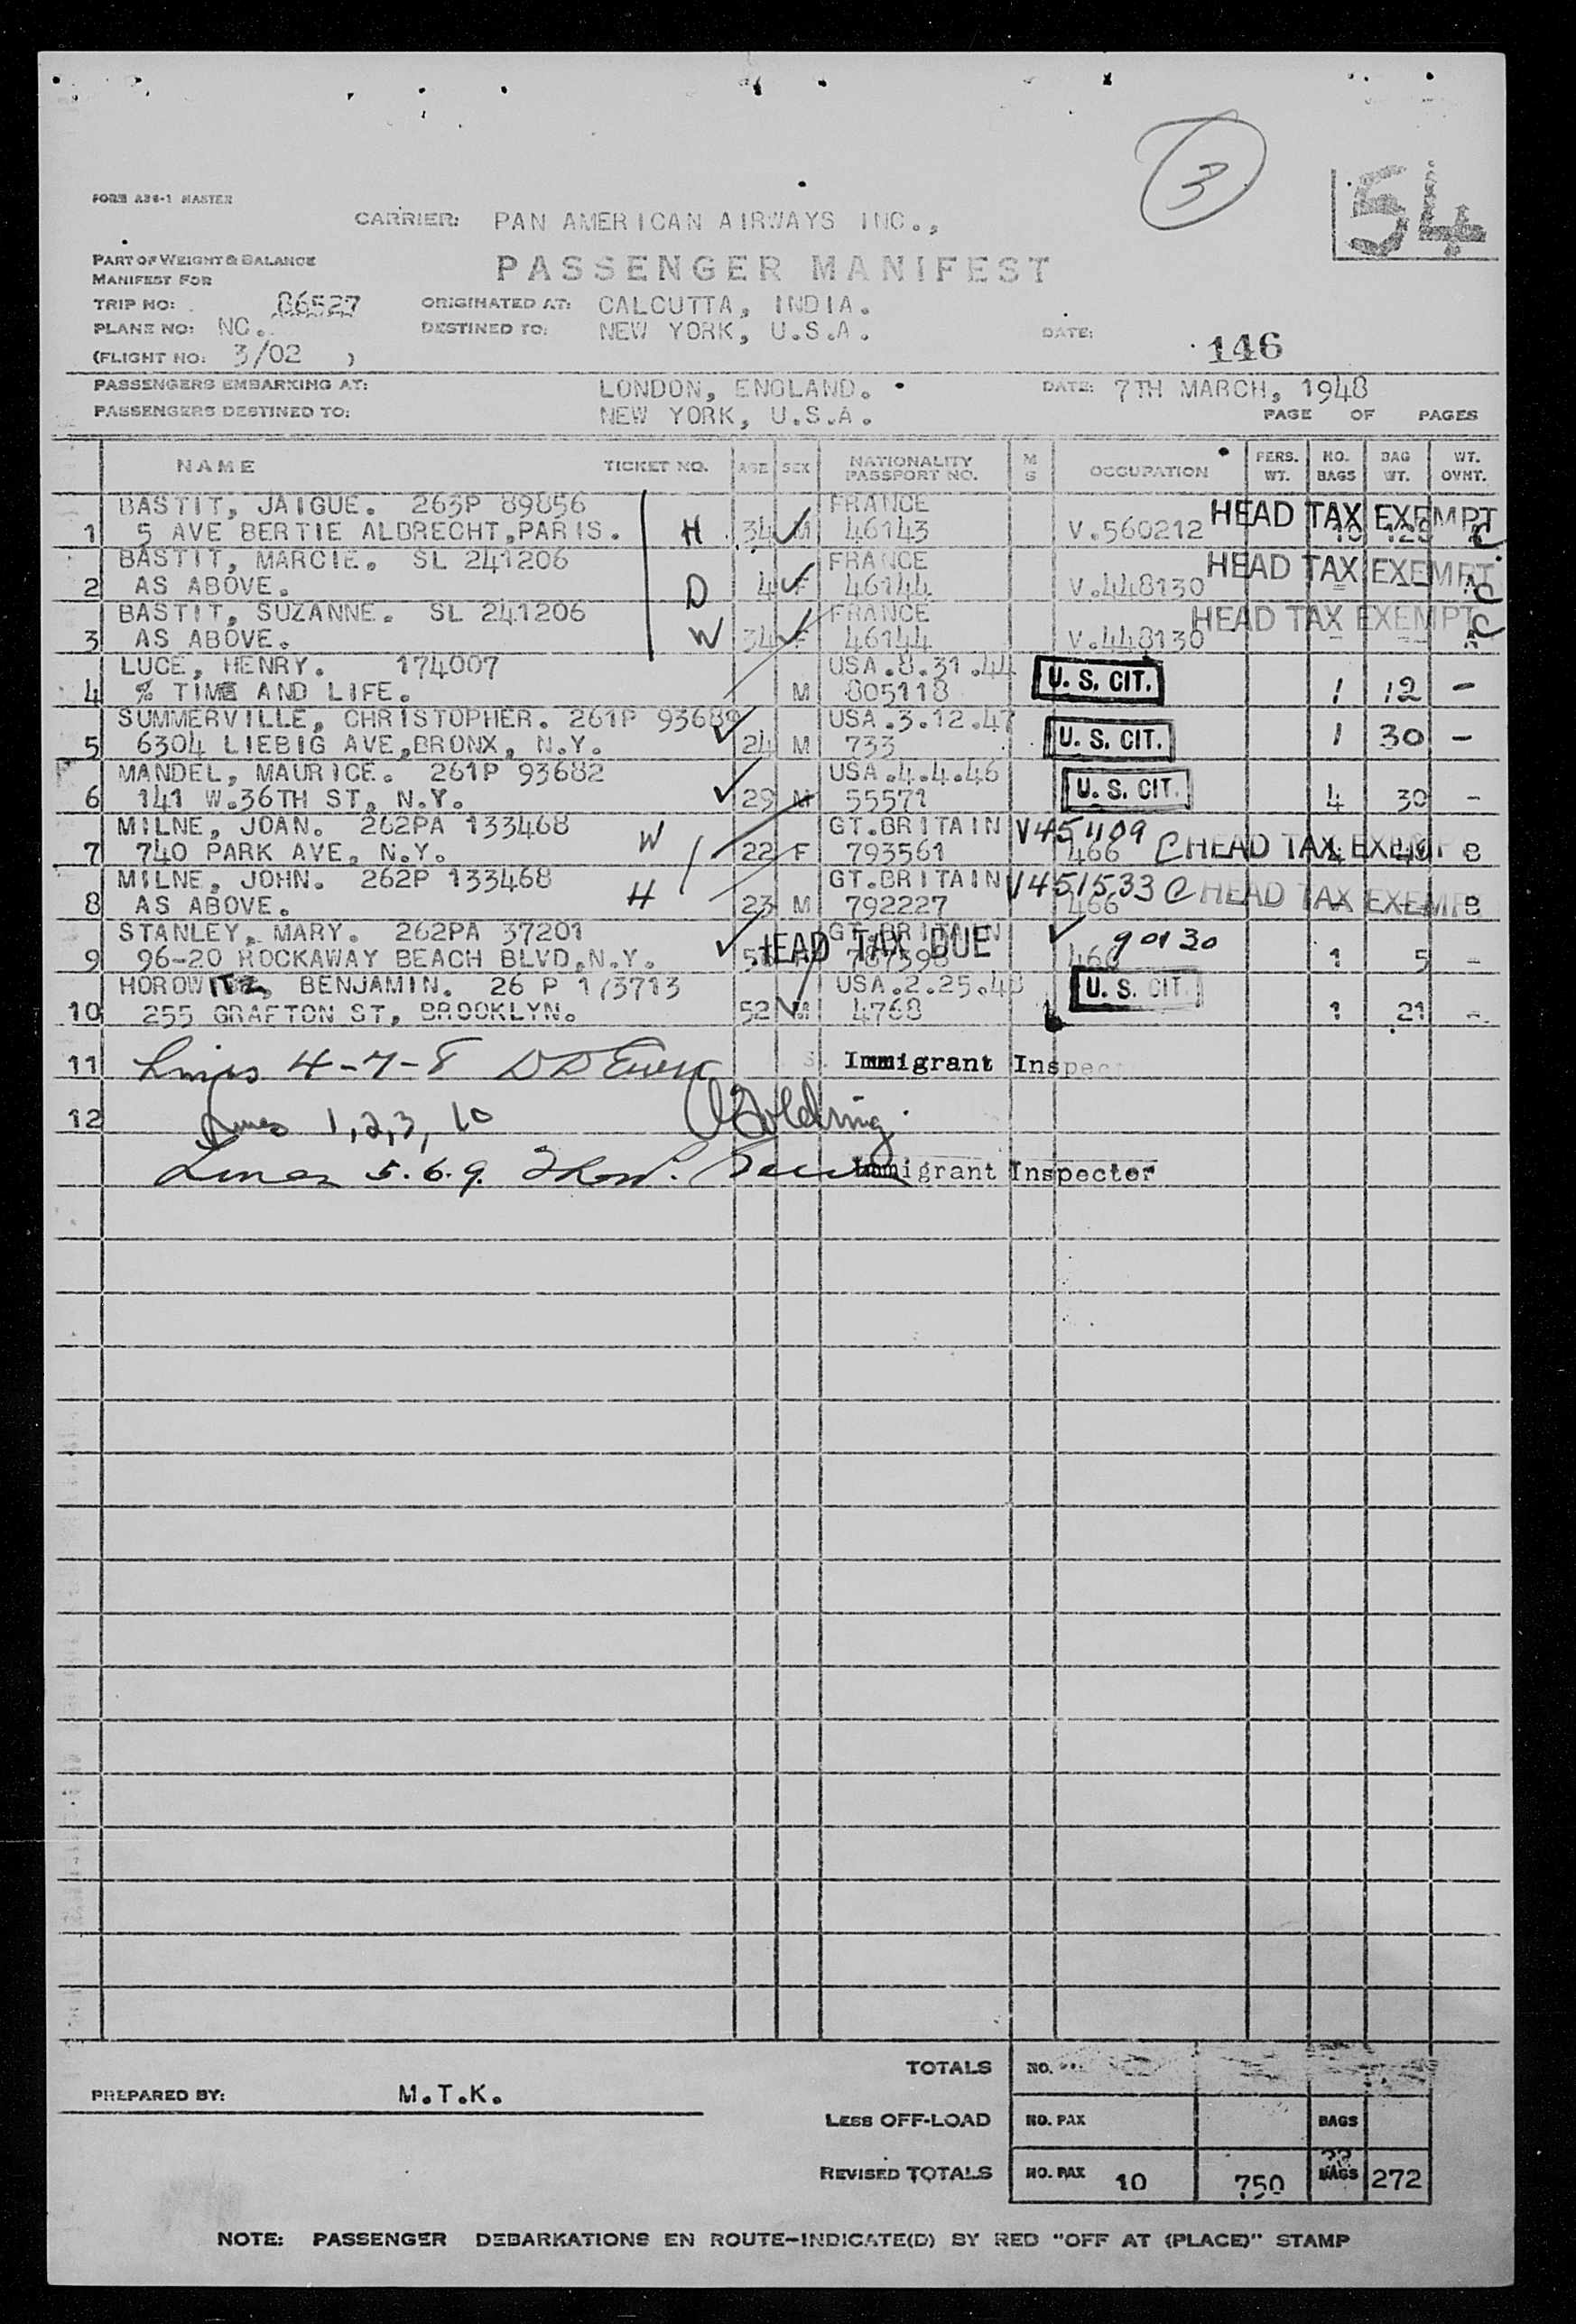 3
54
FORM A36-1 MASTER
CARRIER: PAN AMERICAN AIRWAYS INC.,
PART OF WEIGHT & BALANCE
MANIFEST FOR
PASSENGER MANIFEST
TRIP NO: 86527 ORIGINATED AT: CALCUTTA, INDIA.
PLANE NO: NC. DESTINED TO: NEW YORK, U.S.A. DATE: 146
(FLIGHT NO: 3/02 )
PASSENGERS EMBARKING AT: LONDON, ENGLAND. DATE: 7TH MARCH, 1948
PASSENGERS DESTINED TO: NEW YORK, U.S.A. PAGE OF PAGES
NAME TICKET NO. AGE SEX NATIONALITY PASSPORT NO. M S OCCUPATION PERS. WT. NO. BAGS BAG WT. WT. OVNT.
BASTIT, JAIGUE. 263P 89856 FRANCE HEAD TAX EXEMPT
1 5 AVE BERTIE ALBRECHT,PARIS. H 34 M 46143 V.560212 C
BASTIT, MARCIE. SL 241206 FRANCE HEAD TAX EXEMPT
2 AS ABOVE. D 4 F 46144 V.448130 C
BASTIT, SUZANNE. SL 241206 FRANCE HEAD TAX EXEMPT
3 AS ABOVE. W 34 F 46144 V.448130 C
LUCE, HENRY. 174007 USA.8.31.44 U. S. CIT.
4 % TIME AND LIFE. M 805118 1 12 -
SUMMERVILLE, CHRISTOPHER. 261P 93689 USA.3.12.47 U. S. CIT.
5 6304 LIEBIG AVE,BRONX, N.Y. 24 M 733 1 30 -
MANDEL, MAURICE. 261P 93682 USA.4.4.46 U. S. CIT.
6 141 W.36TH ST, N.Y. 29 M 55571 4 30 -
MILNE, JOAN. 262PA 133468 W GT.BRITAIN V451109
7 740 PARK AVE, N.Y. 22 F 793561 466 C HEAD TAX EXEMP
MILNE, JOHN. 262P 133468 H GT.BRITAIN V451533 C HEAD TAX EXEMPT
8 AS ABOVE. 23 M 792227 466
STANLEY, MARY. 262PA 37201 GT.BRITAIN HEAD TAX DUE 90130
9 96-20 ROCKAWAY BEACH BLVD,N.Y. 1 5 -
HOROWITZ, BENJAMIN. 26 P 173713 USA.2.25.48 U. S. CIT.
10 255 GRAFTON ST, BROOKLYN. 52 M 4768 1 21 -
11 Lines 4-7-8 Immigrant Inspec
12 Lines 1,2,3, 10 Golding
Lines 5.6.9. Immigrant Inspector
TOTALS NO.
PREPARED BY: M.T.K.
LESS OFF-LOAD NO. PAX BAGS
REVISED TOTALS NO. PAX 10 750 BAGS 272
NOTE: PASSENGER DEBARKATIONS EN ROUTE-INDICATE(D) BY RED "OFF AT (PLACE)" STAMP